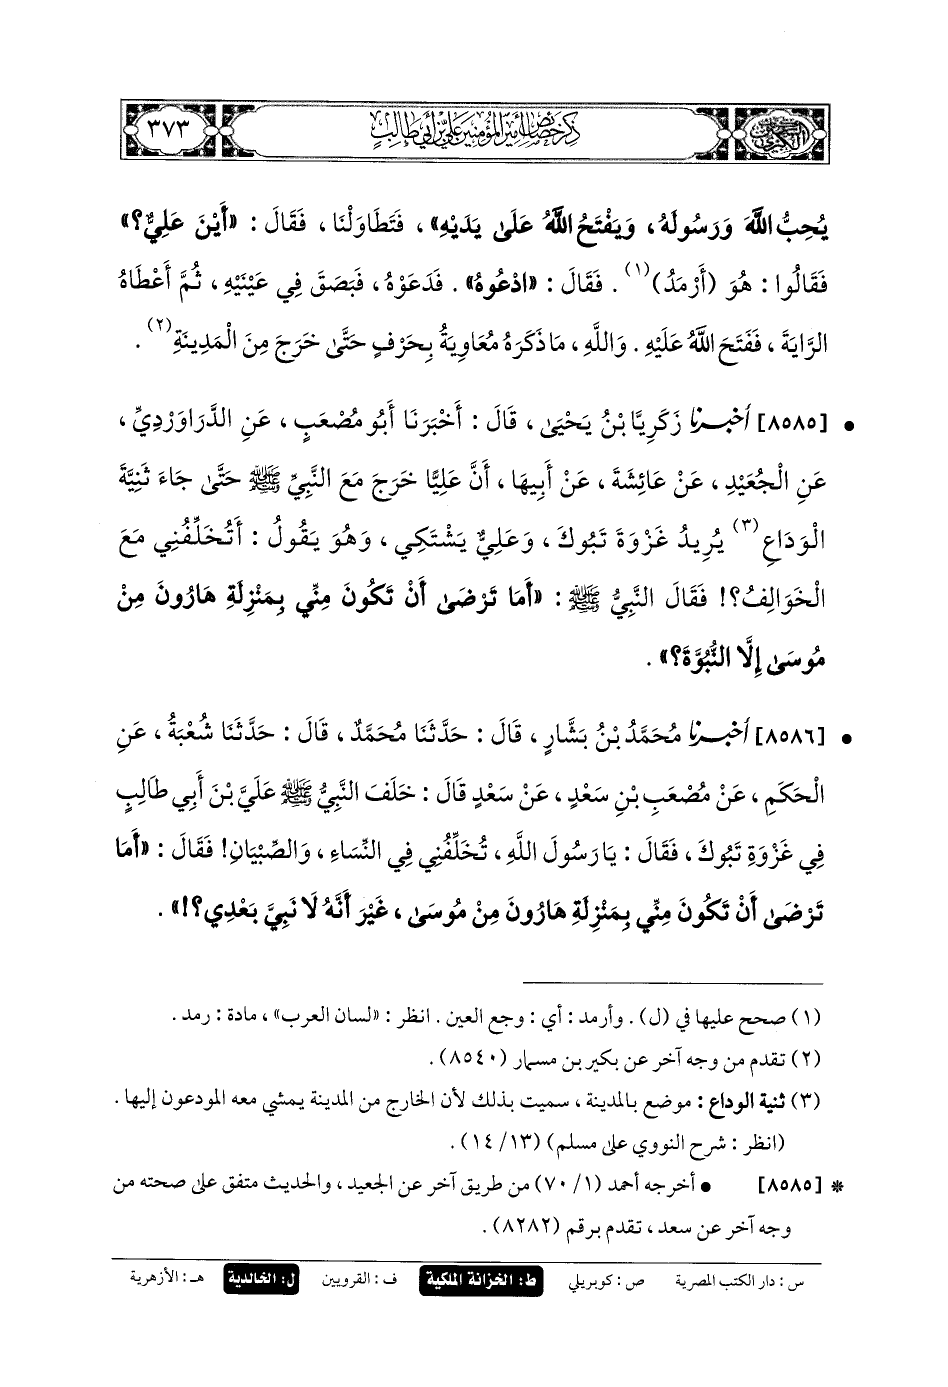 ذكر خصائص أمير المؤمنين علي بن أبي طالب
٣٧٣
يُحِبُّ اللَّهَ وَرَسُولَهُ، وَيَفْتَحُ اللَّهُ عَلَى يَدَيْهِ»، فَتَطَاوَلْنَا، فَقَالَ: «أَيْنَ عَلِيٌّ؟»
فَقَالُوا: هُوَ (أَرْمَدُ)(١). فَقَالَ: «ادْعُوهُ». فَدَعَوْهُ، فَبَصَقَ فِي عَيْنَيْهِ، ثُمَّ أَعْطَاهُ
الرَّايَةَ، فَفَتَحَ اللَّهُ عَلَيْهِ. وَاللَّهِ، مَا ذَكَرَهُ مُعَاوِيَةُ بِحَرْفٍ حَتَّى خَرَجَ مِنَ الْمَدِينَةِ(٢).
• [٨٥٨٥] أخبرنا زَكَرِيَّا بْنُ يَحْيَى، قَالَ: أَخْبَرَنَا أَبُو مُصْعَبٍ، عَنِ الدَّرَاوَرْدِيِّ،
عَنِ الْجُعَيْدِ، عَنْ عَائِشَةَ، عَنْ أَبِيهَا، أَنَّ عَلِيًّا خَرَجَ مَعَ النَّبِيِّ ﷺ حَتَّى جَاءَ ثَنِيَّةَ
الْوَدَاعِ(٣) يُرِيدُ غَزْوَةَ تَبُوكَ، وَعَلِيٌّ يَشْتَكِي، وَهُوَ يَقُولُ: أَتُخَلِّفُنِي مَعَ
الْخَوَالِفُ؟! فَقَالَ النَّبِيُّ ﷺ: «أَمَا تَرْضَى أَنْ تَكُونَ مِنِّي بِمَنْزِلَةِ هَارُونَ مِنْ
مُوسَى إِلَّا النُّبُوَّةَ؟».
• [٨٥٨٦] أخبرنا مُحَمَّدُ بْنُ بَشَّارٍ، قَالَ: حَدَّثَنَا مُحَمَّدٌ، قَالَ: حَدَّثَنَا شُعْبَةُ، عَنِ
الْحَكَمِ، عَنْ مُصْعَبِ بْنِ سَعْدٍ، عَنْ سَعْدٍ قَالَ: خَلَفَ النَّبِيُّ ﷺ عَلَيَّ بْنَ أَبِي طَالِبٍ
فِي غَزْوَةِ تَبُوكَ، فَقَالَ: يَا رَسُولَ اللَّهِ، تُخَلِّفُنِي فِي النِّسَاءِ، وَالصِّبْيَانِ! فَقَالَ: «أَمَا
تَرْضَى أَنْ تَكُونَ مِنِّي بِمَنْزِلَةِ هَارُونَ مِنْ مُوسَى، غَيْرَ أَنَّهُ لَا نَبِيَّ بَعْدِي؟!».
(١) صحح عليها في (ل). وأرمد: أي: وجع العين. انظر: «لسان العرب»، مادة: رمد.
(٢) تقدم من وجه آخر عن بكير بن مسمار (٨٥٤٠).
(٣) ثنية الوداع: موضع بالمدينة، سميت بذلك لأن الخارج من المدينة يمشي معه المودعون إليها.
(انظر: شرح النووي على مسلم) (١٣/ ١٤).
* [٨٥٨٥] • أخرجه أحمد (١/ ٧٠) من طريق آخر عن الجعيد، والحديث متفق على صحته من
وجه آخر عن سعد، تقدم برقم (٨٢٨٢).
س: دار الكتب المصرية ص: كوبريلي ط: الخزانة الملكية ف: القرويين ل: الخالدية هـ: الأزهرية